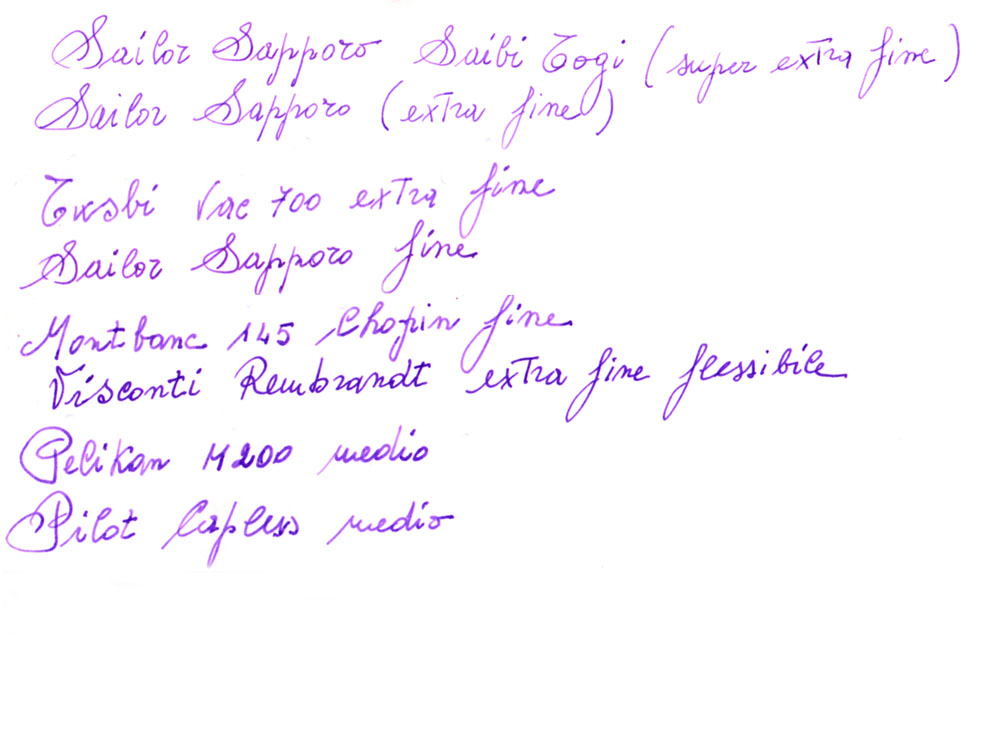 Sailor Sapporo Saibi Togi (super extra fine)
Sailor Sapporo (extra fine)
Twsbi Vac 700 extra fine
Sailor Sapporo fine
Montbanc 145 Chopin fine
Visconti Rembrandt extra fine flessibile
Pelikan M200 medio
Pilot Capless medio